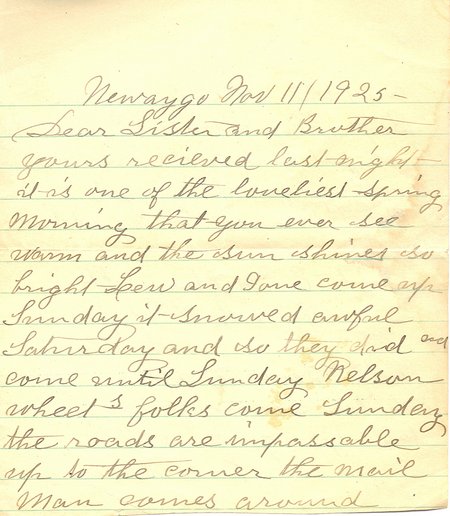 Newaygo Nov 11/1925-
Dear Sister and Brother
yours recieved last night
it is one of the loveliest spring
morning that you ever see
warm and the sun shines so
bright Lew and Ione come up
Sunday it snowed awful
Saturday and so they did not
come until Sunday Nelson
wheets folks come Sunday
the roads are impassable
up to the corner the mail
man comes around